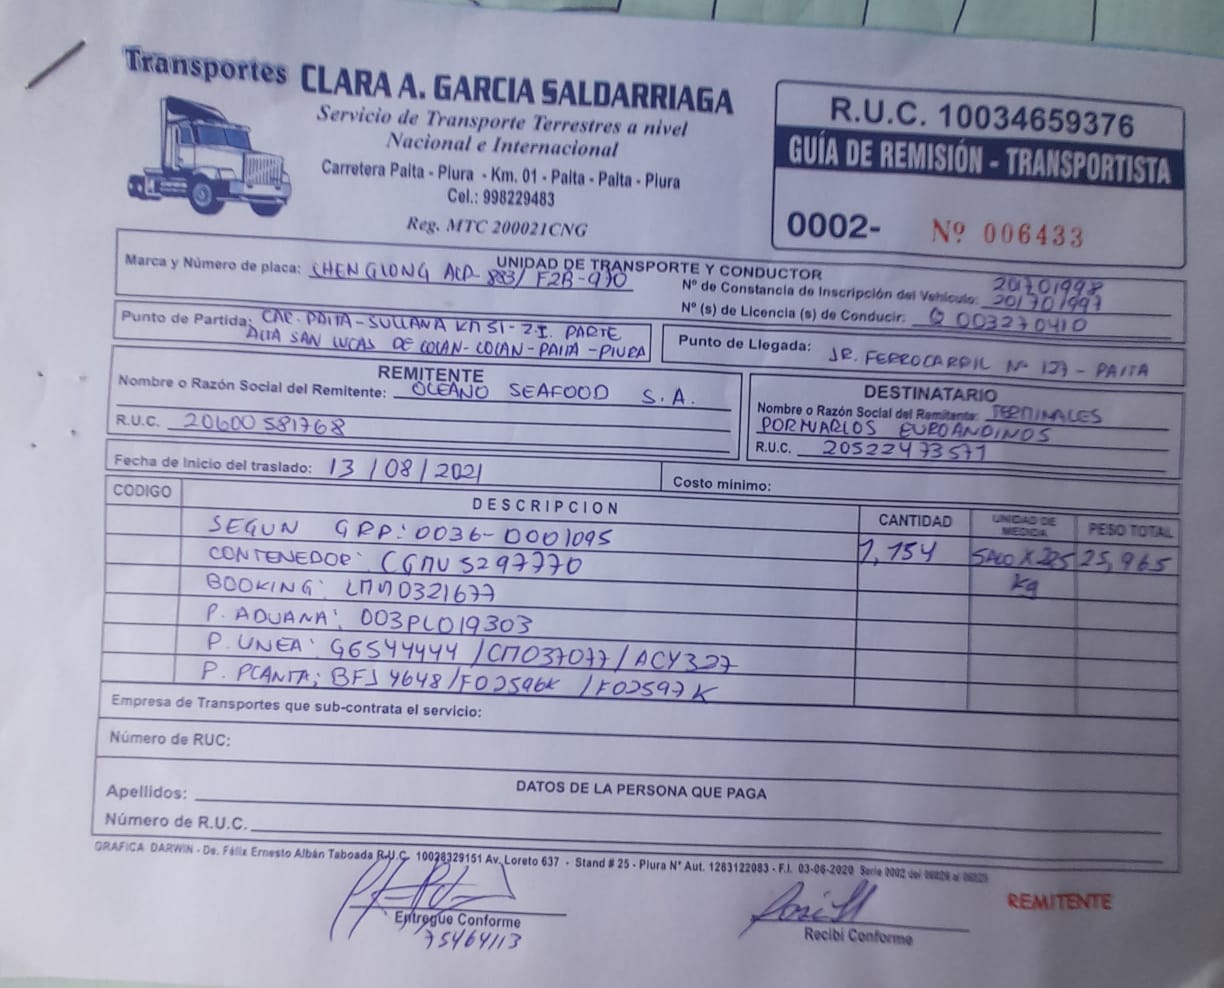 Transportes CLARA A. GARCIA SALDARRIAGA
Servicio de Transporte Terrestres a nivel
Nacional e Internacional
Carretera Paita - Piura - Km. 01 - Paita - Paita - Piura
Cel.: 998229483
Reg. MTC 200021CNG
R.U.C. 10034659376
GUÍA DE REMISIÓN - TRANSPORTISTA
0002- Nº 006433
UNIDAD DE TRANSPORTE Y CONDUCTOR
Marca y Número de placa: CHENGLONG ACP-883/ F2B-970
Nº de Constancia de Inscripción del Vehículo: 201701998
201701997
Nº (s) de Licencia (s) de Conducir: Q 003270410
Punto de Partida: CAR. PAITA-SULLANA KM 51-Z.I. PARTE
ALTA SAN LUCAS DE COLAN-COLAN-PAITA-PIURA
Punto de Llegada: JR. FERROCARRIL Nº 127 - PAITA
REMITENTE
Nombre o Razón Social del Remitente: OCEANO SEAFOOD S.A.
R.U.C. 20600581768
DESTINATARIO
Nombre o Razón Social del Remitente: TERMINALES
PORTUARIOS EUROANDINOS
R.U.C. 20522473571
Fecha de Inicio del traslado: 13/08/2021
Costo mínimo:
CODIGO DESCRIPCION CANTIDAD UNIDAD DE MEDIDA PESO TOTAL
SEGUN GRR: 0036-0001095
CONTENEDOR: CGMU 5297770 1,154 SACO X 22.5 25,965
BOOKING: LMM0321677 kg
P. ADUANA: 003PL019303
P. LINEA: G6544444 /CM037077/ACY327
P. PLANTA: BFJ4648/F02596K /F02597K
Empresa de Transportes que sub-contrata el servicio:
Número de RUC:
DATOS DE LA PERSONA QUE PAGA
Apellidos:
Número de R.U.C.
GRAFICA DARWIN - De. Félix Ernesto Albán Taboada R.U.C. 10028329151 Av. Loreto 637 - Stand # 25 - Piura Nº Aut. 1283122083 - F.I. 03-06-2020 Serie 0002 del
Entregue Conforme
75464113
Recibí Conforme
REMITENTE